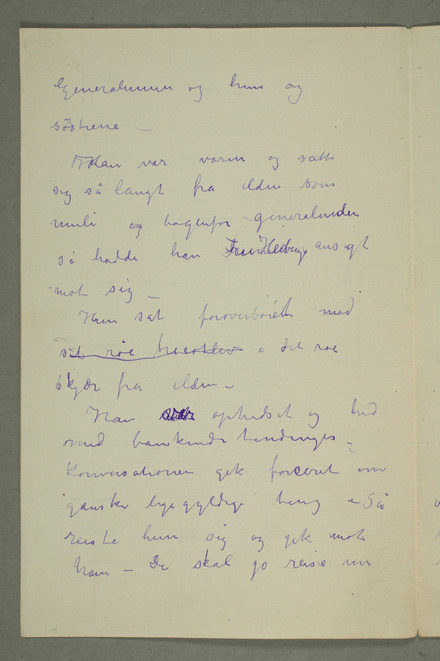 Generalinnen og hun og
søstrene –
Han var varm og satte
sig så langt fra ilden som
muli og bagenfor generalinden
så hadde han Fru Heibergs ansigt
mot sig –
Hun sat foroverbøiet med
det røe i det røe
skjær fra ilden –
Han ophidset og hed
med bankende tindinger –
Konversationen gik forceret om
ganske ligegyldige ting – Så
reiste hun sig og gik mot
ham – De skal jo reise